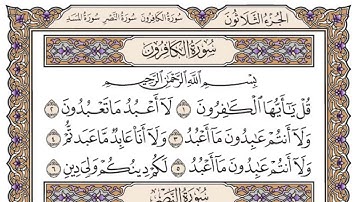 الجزء الثلاثون سورة الكافرون سورة النصر سورة المسد
سورة الكافرون
بسم الله الرحمن الرحيم
قُلْ يَٰٓأَيُّهَا ٱلْكَٰفِرُونَ ١ لَآ أَعْبُدُ مَا تَعْبُدُونَ ٢
وَلَآ أَنتُمْ عَٰبِدُونَ مَآ أَعْبُدُ ٣ وَلَآ أَنَا۠ عَابِدٌ مَّا عَبَدتُّمْ ٤
وَلَآ أَنتُمْ عَٰبِدُونَ مَآ أَعْبُدُ ٥ لَكُمْ دِينُكُمْ وَلِىَ دِينِ ٦
سورة النصر